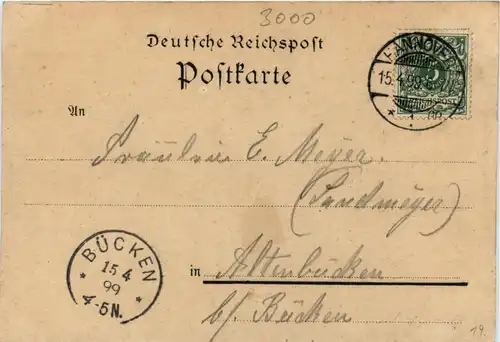 3000
Deutsche Reichspost
Postkarte
HANNOVER
15.4.99
An
Fräulein E. Meyer.
(Landmeyer)
in Altenbücken
b/ Bücken
BÜCKEN
15 4
99
4-5N.
19.